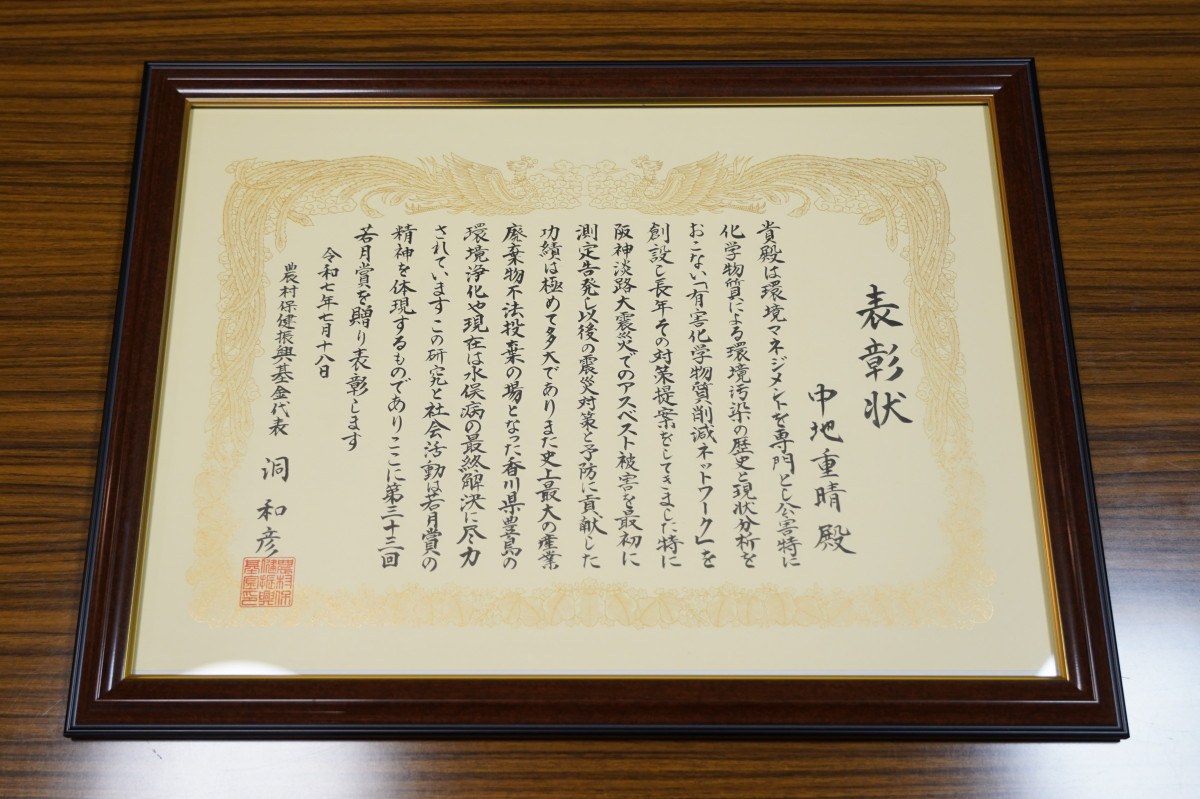 表彰状
中地重晴 殿
貴殿は環境マネジメントを専門とし公害特に
化学物質による環境汚染の歴史と現状分析を
おこない「有害化学物質削減ネットワーク」を
創設し長年その対策提案をしてきました特に
阪神淡路大震災でのアスベスト被害を最初に
測定告発し以後の震災対策と予防に貢献した
功績は極めて多大でありまた史上最大の産業
廃棄物不法投棄の場となった香川県豊島の
環境浄化や現在は水俣病の最終解決に尽力
されていますこの研究と社会活動は若月賞の
精神を体現するものでありここに第三十三回
若月賞を贈り表彰します
令和七年七月十八日
農村保健振興基金代表 洞 和彦
農村保
健振興
基金印